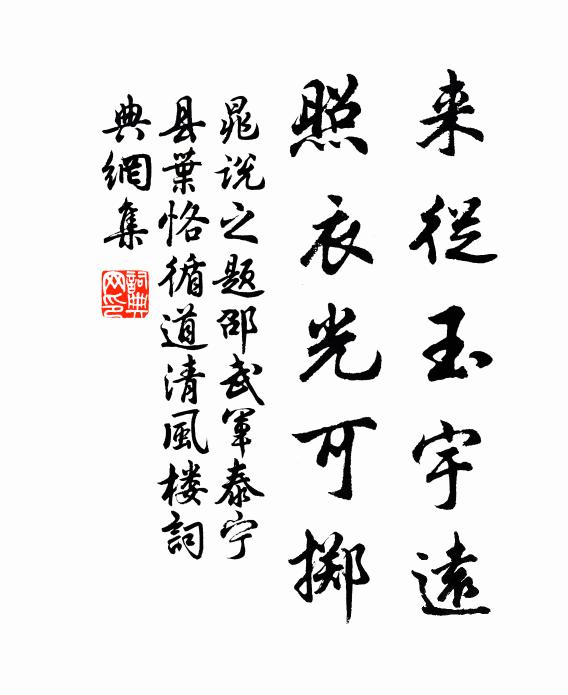 来從玉宇遠
照衣光可掷
晁说之题邵武军泰宁
县葉恪循道清風楼詞
典網集
詞典网印